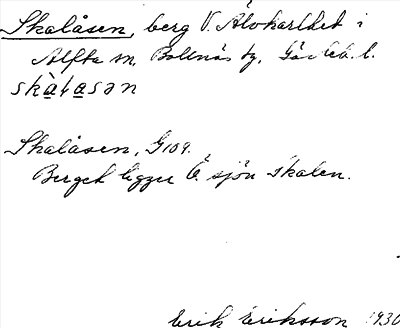 Skalåsen, berg V. Älvkarlhed i
Alfta sn. Bollnäs tg. Gävleb. l.
skàlasən
Skalåsen, G109.
Berget ligger Ö. sjön Skalen.
Erik Eriksson 1930